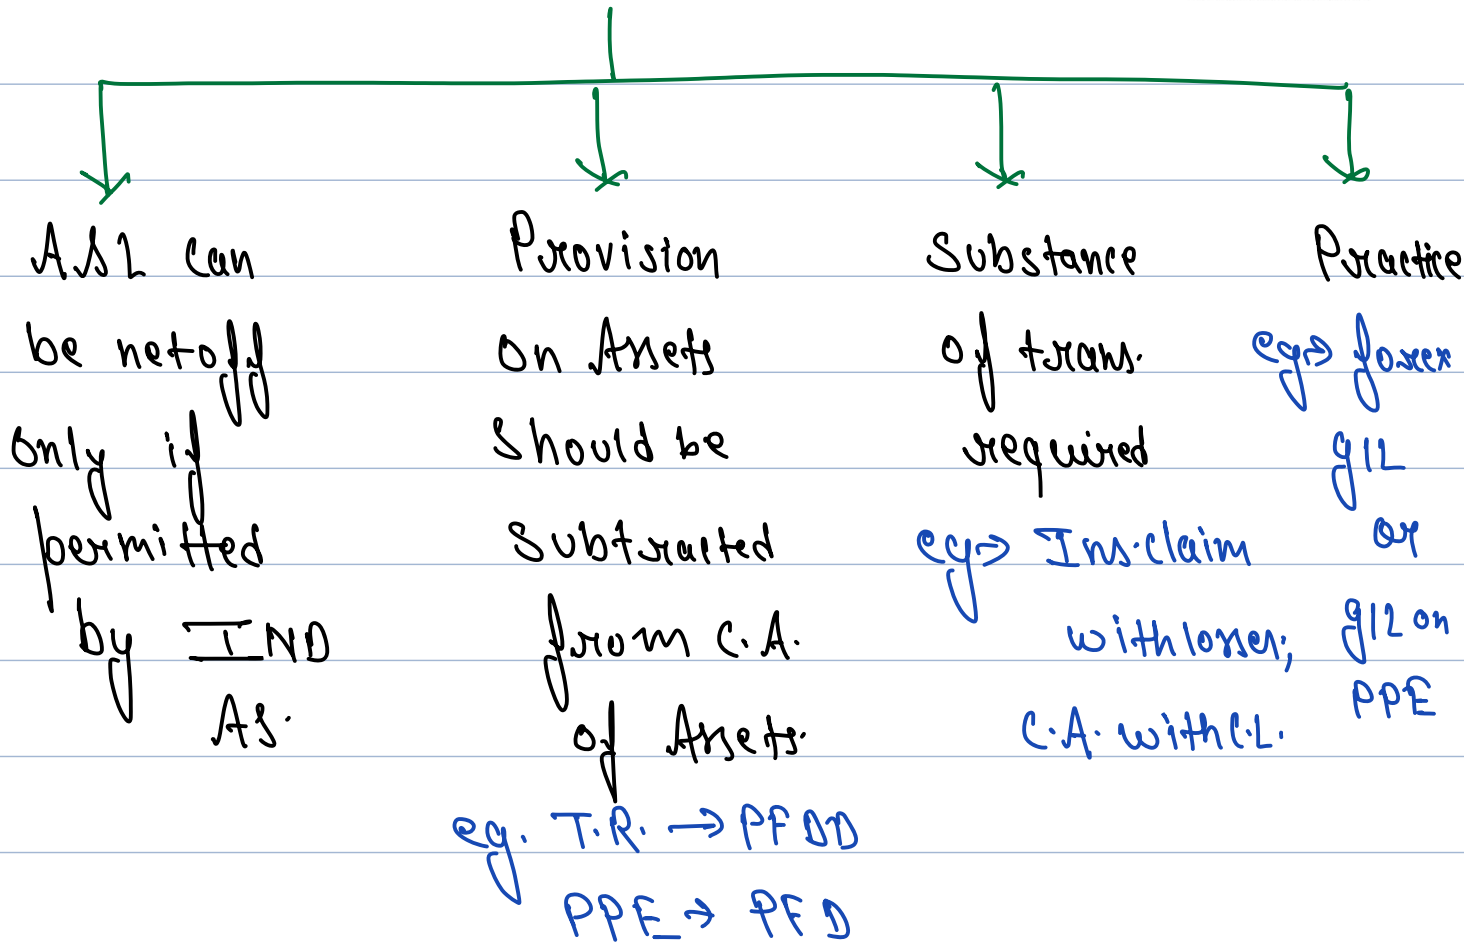 A&L can
be netoff
only if
permitted
by IND
AS.
Provision
on Assets
should be
subtracted
from C.A.
of Assets.
eg. T.R. → PFDD
PPE → PFD
Substance
of trans.
required
eg→ Ins. claim
with losses;
C.A. with C.L.
Practice
eg→ forex
g/L
or
g/L on
PPE